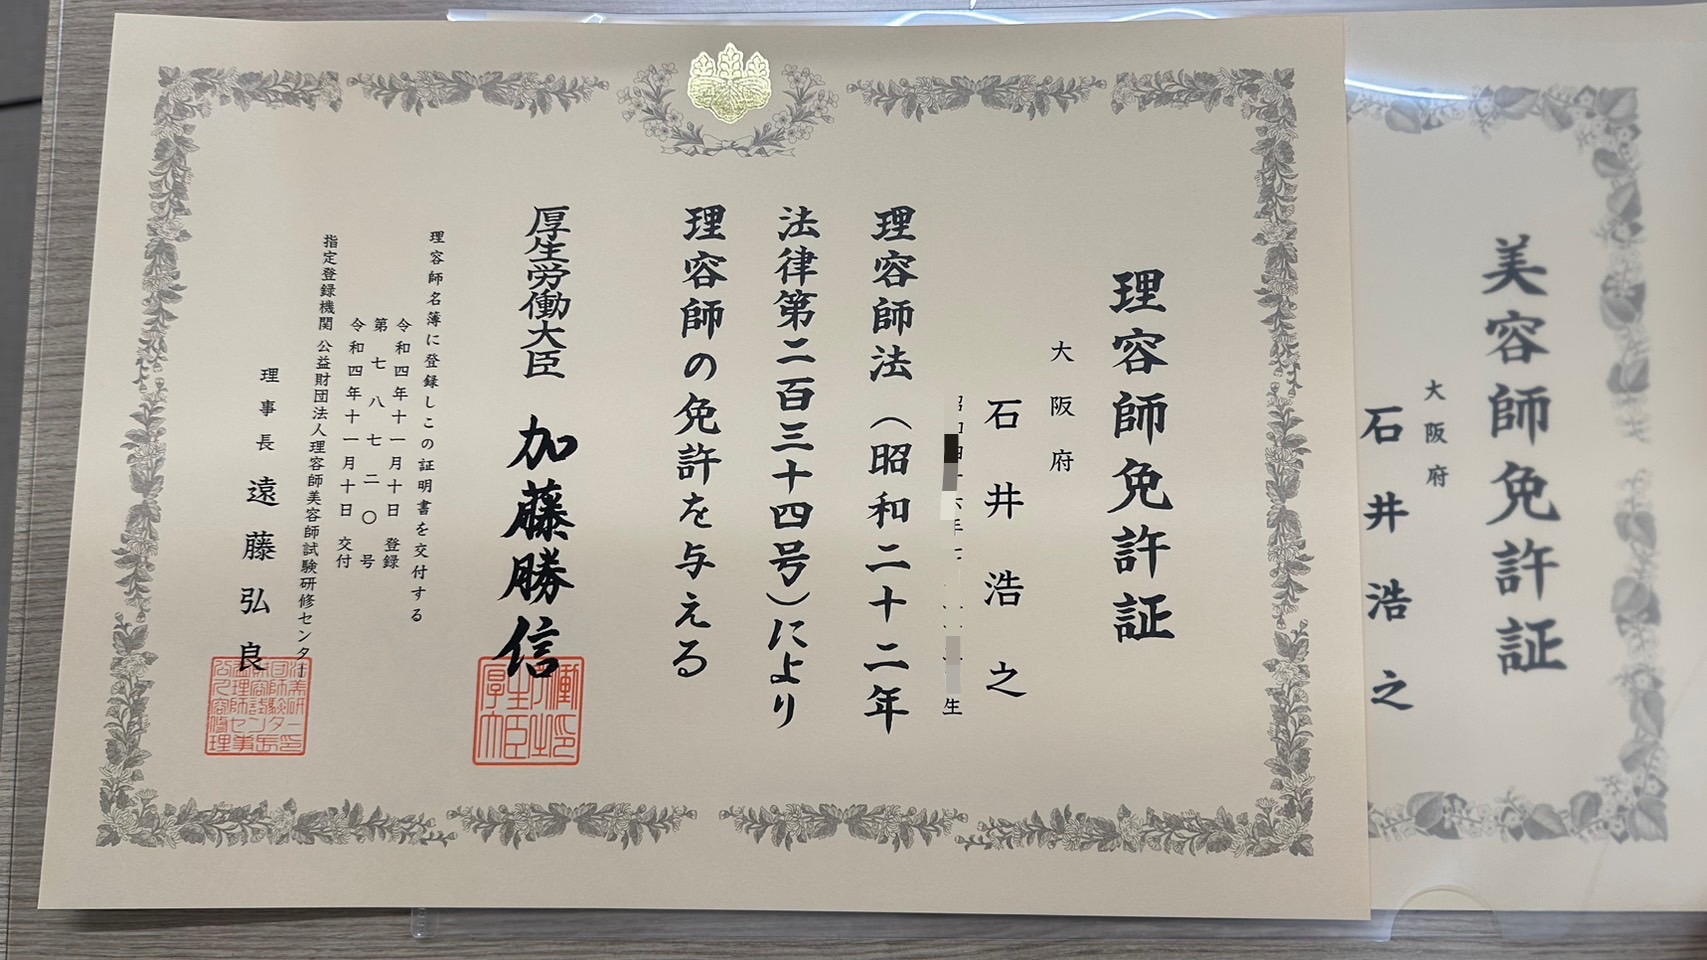 理容師免許証
大阪府
石井浩之
生
理容師法（昭和二十二年
法律第二百三十四号）により
理容師の免許を与える
厚生労働大臣 加藤勝信
理容師名簿に登録しこの証明書を交付する
令和四年十一月十日 登録
第七八七二〇号
令和四年十一月十日 交付
指定登録機関 公益財団法人理容師美容師試験研修センター
理事長 遠藤弘良
美容師免許証
大阪府
石井浩之